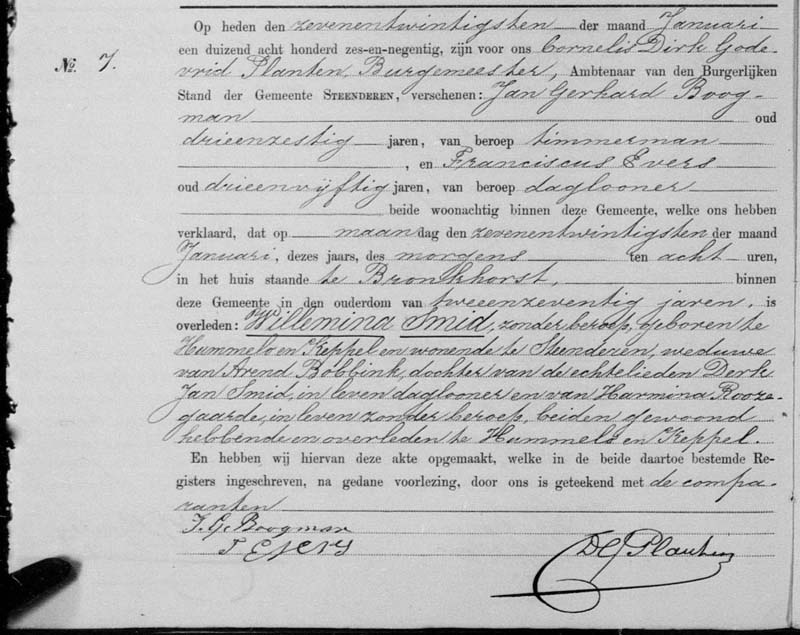 Op heden den zevenentwintigsten der maand Januari
een duizend acht honderd zes-en-negentig, zijn voor ons Cornelis Dirk Gode-
No. 7. vrid Planten, Burgemeester, Ambtenaar van den Burgerlijken
Stand der Gemeente STEENDEREN, verschenen: Jan Gerhard Boog-
man oud
drieenzestig jaren, van beroep timmerman
, en Franciscus Evers
oud drieenvijftig jaren, van beroep daglooner
beide woonachtig binnen deze Gemeente, welke ons hebben
verklaard, dat op maandag den zevenentwintigsten der maand
Januari, dezes jaars, des morgens ten acht uren,
in het huis staande te Bronkhorst, binnen
deze Gemeente in den ouderdom van tweeenzeventig jaren, is
overleden: Willemina Smid, zonder beroep, geboren te
Hummelo en Keppel en wonende te Steenderen, weduwe
van Arend Bobbink, dochter van de echtelieden Derk
Jan Smid, in leven daglooner en van Harmina Rooze-
gaarde, in leven zonder beroep, beiden gewoond
hebbende en overleden te Hummelo en Keppel.
En hebben wij hiervan deze akte opgemaakt, welke in de beide daartoe bestemde Re-
gisters ingeschreven, na gedane voorlezing, door ons is geteekend met de compa-
ranten
J. G. Boogman
F EVERS
DG Planten